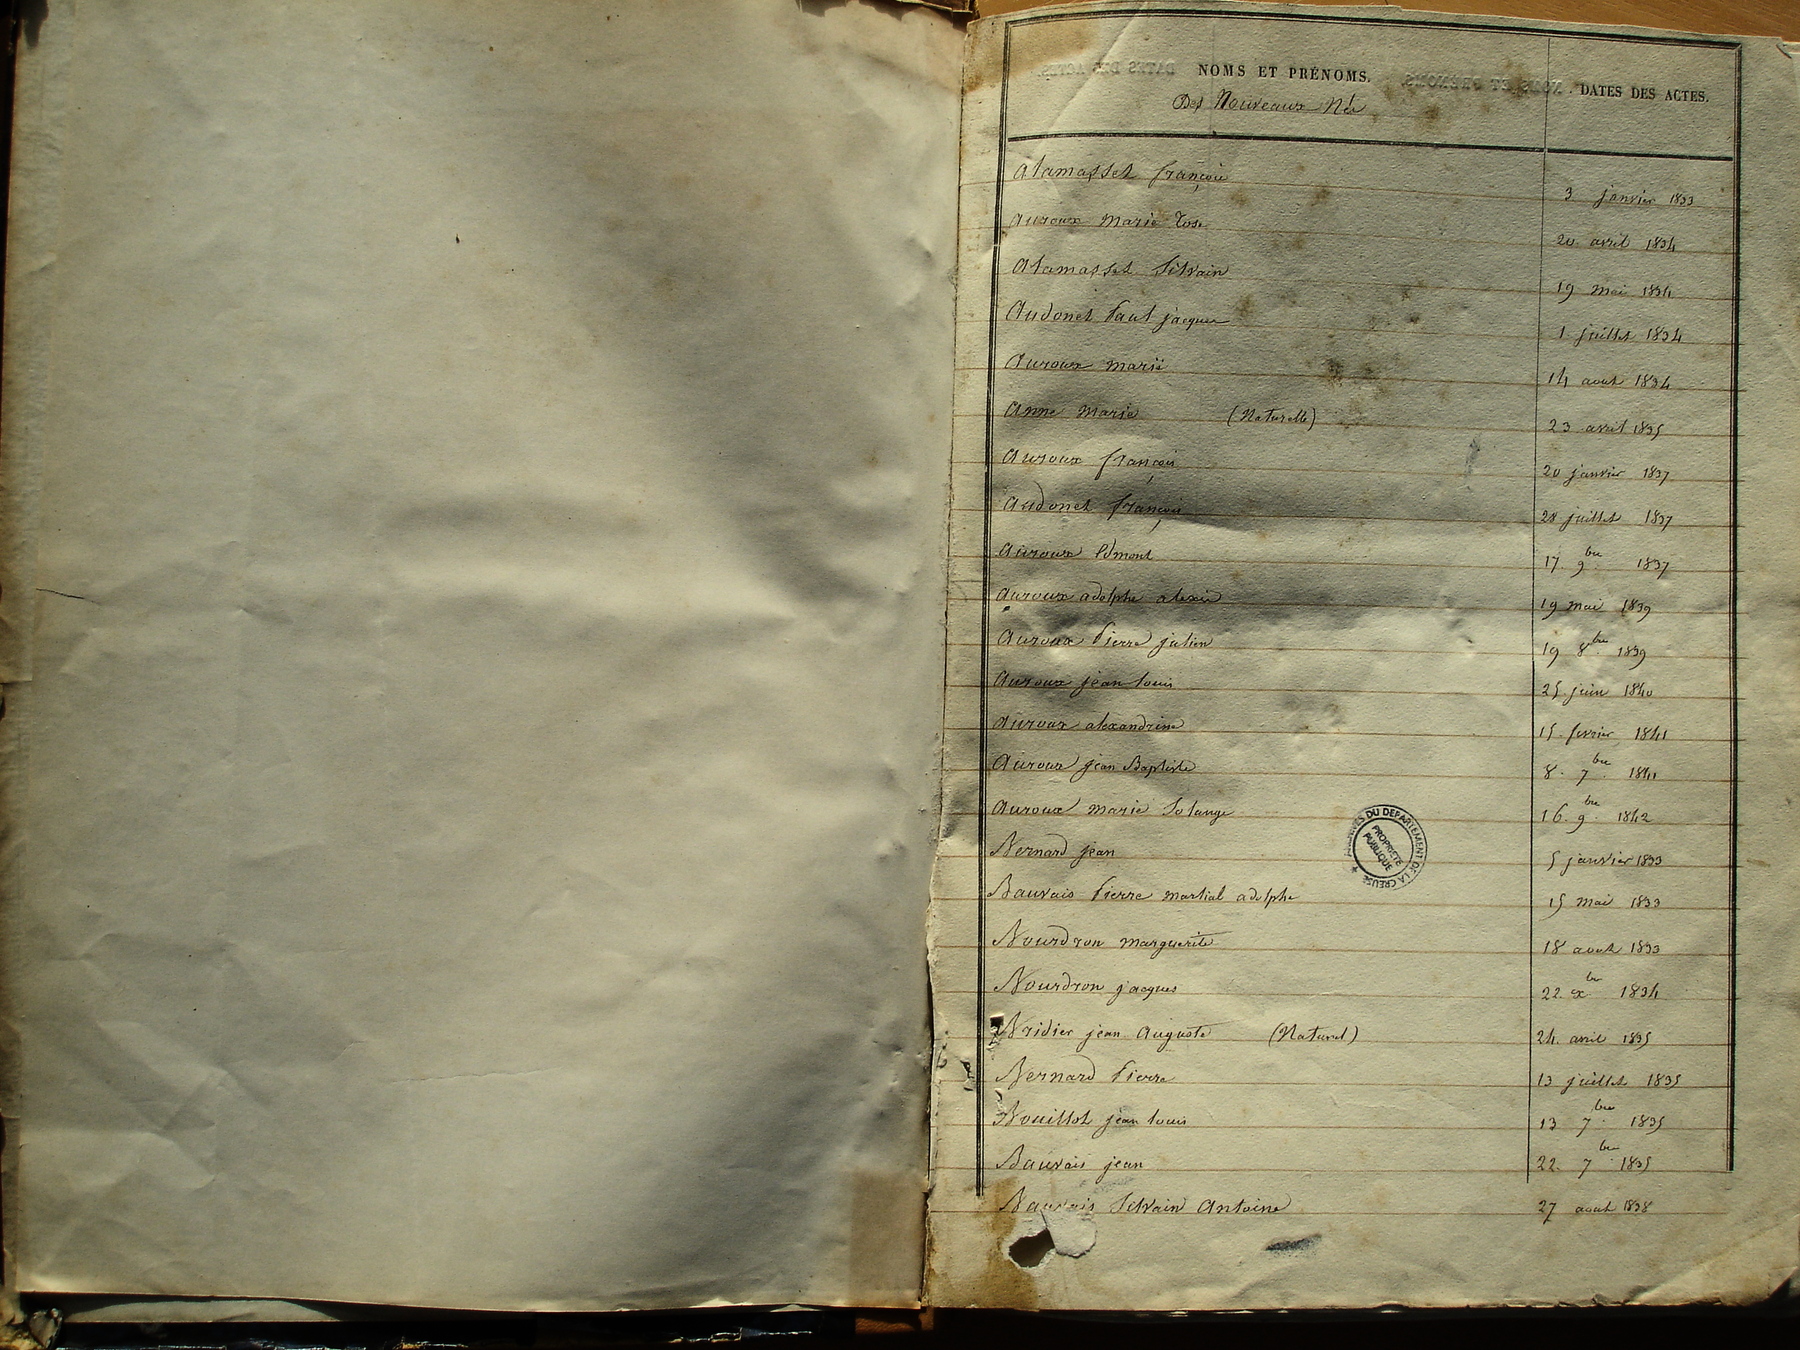 NOMS ET PRÉNOMS. DATES DES ACTES.
Des Nouveaux Née
Alamasset françois 3 janvier 1833
Auroux Marie Rose 20 avril 1834
Alamasset Silvain 19 Mai 1834
Audonet Paul jacques 1 juillet 1834
Auroux marie 14 aout 1834
Anne Marie (Naturelle) 23 avril 1835
Auroux françois 20 janvier 1837
Audonet françois 28 juillet 1837
Auroux Edmont 17 9bre 1837
Auroux adolphe alexis 19 mai 1839
Auroux Pierre julien 19 8bre 1839
Auroux jean louis 25 juin 1840
Auroux alexandrine 15 fevrier 1841
Auroux jean Baptiste 8 7bre 1841
Auroux marie Solange 16 9bre 1842
Bernard jean 5 janvier 1833
Bauvais Pierre martial adolphe 15 mai 1833
Bourdron marguerite 18 aout 1833
Bourdron jacques 22 xbre 1834
Bridier jean Auguste (Naturel) 24 avril 1835
Bernard Pierre 13 juillet 1835
Bouillot jean louis 13 7bre 1835
Bauvais jean 22 7bre 1835
Bauvais Silvain Antoine 27 aout 1838
ARCHIVES DU DEPARTEMENT DE LA CREUSE
PROPRIÉTÉ
PUBLIQUE